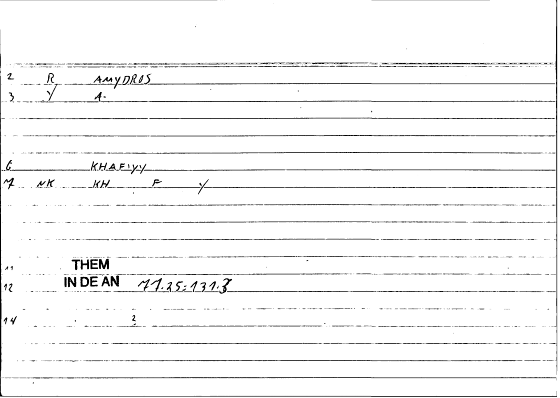 2 R AMYDROS
3 Y A.
6 KHAFIYY
7 NK KH F Y
11 THEM
12 IN DE AN 71.25:131.3
14 2